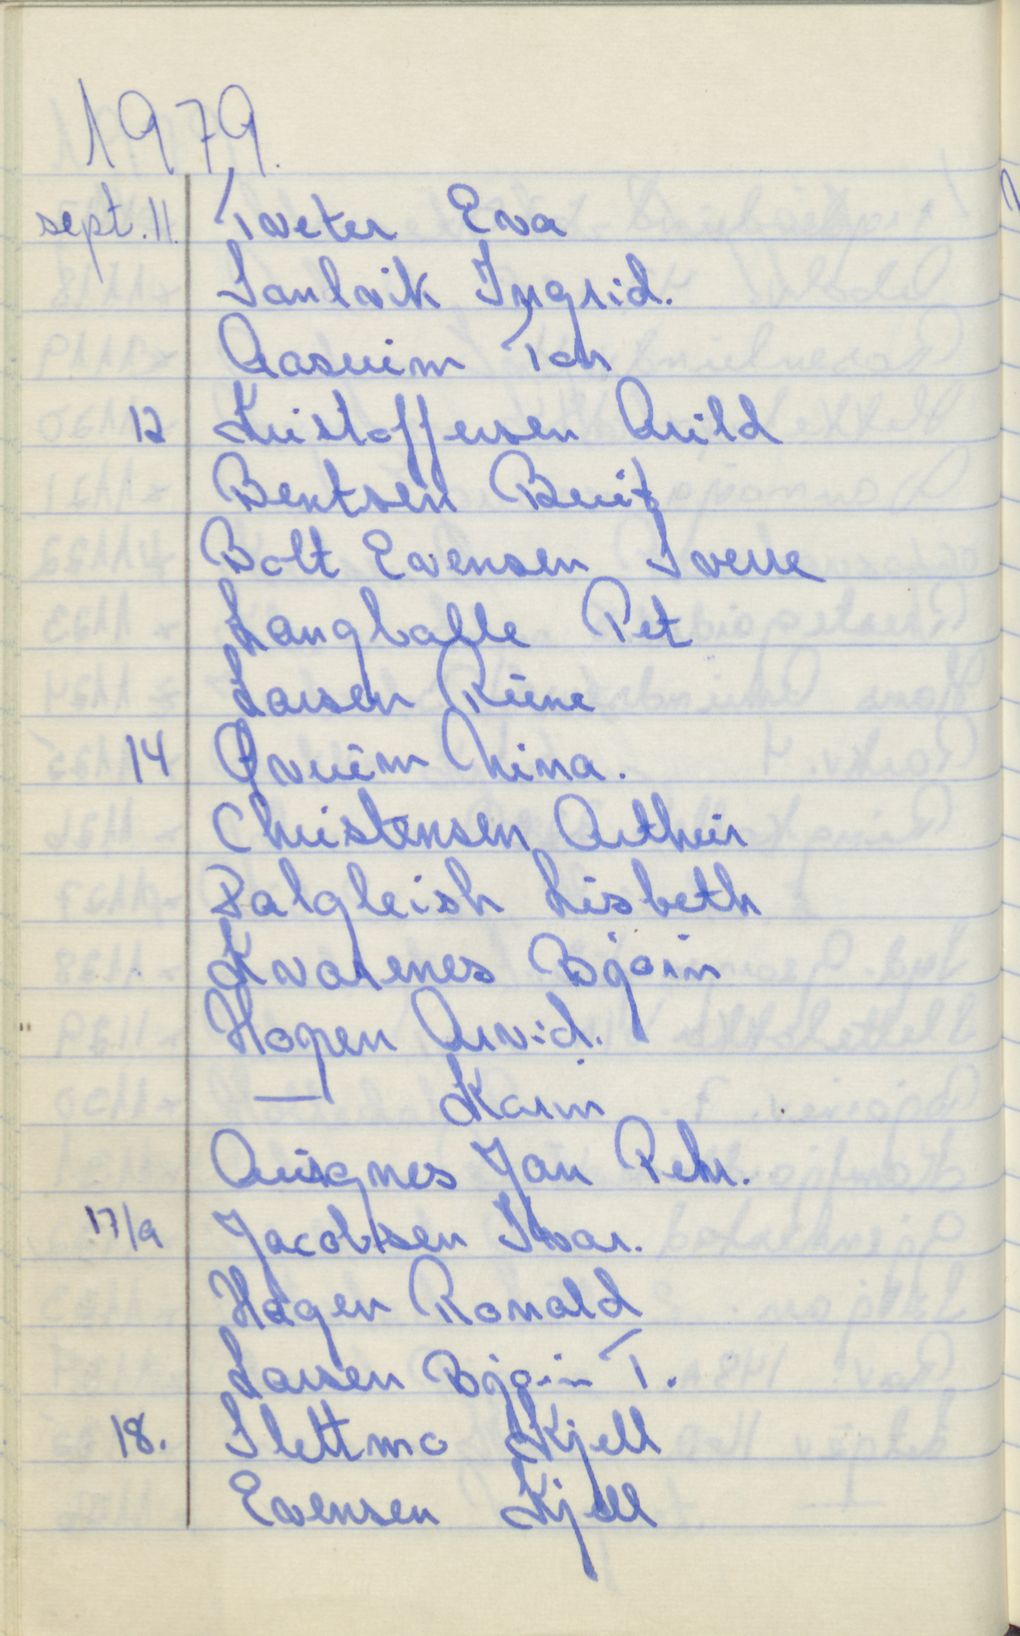 1979.
sept. 11. Tveter Eva
Sandvik Ingrid.
Aasheim Tor
12 Kristoffersen Arild
Bentsen Berit
Bolt Evensen Sverre
Langballe Pet
Larsen Rune
14 Øverèm Nina.
Christensen Arthur
Dalgleish Lisbeth
Kvarenes Bjørn
Hopen Arvid.
— Karin
Jan Petr.
17/9 Jacobsen Ivar.
Hagen Ronald
Larsen Bjørn T.
18. Slettmo Kjell
Evensen Kjell